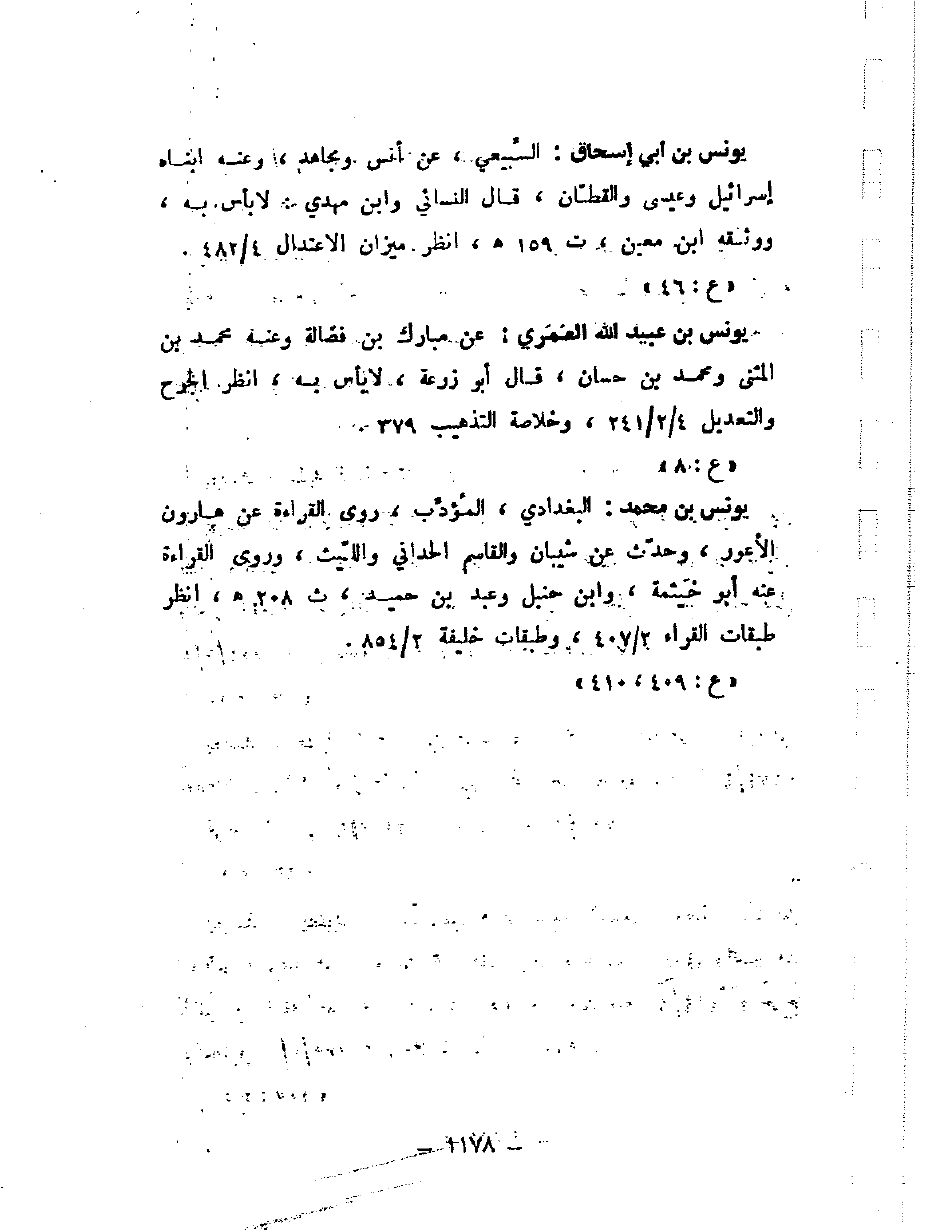 يونس بن أبي إسحاق : السَّبيعي ، عن أنس ومجاهد ، وعنه ابناه
إسرائيل وعيسى والقطّان ، قال النسائي وابن مهدي : لابأس به ،
ووثقه ابن معين ، ت ١٥٩ ه ، انظر ميزان الاعتدال ٤٨٢/٤ .
«ع : ٤٦»
يونس بن عبيد الله العُمَري : عن مبارك بن فضالة وعنه محمد بن
المثنى ومحمد بن حسان ، قال أبو زرعة ، لابأس به ، انظر الجرح
والتعديل ٢٤١/٢/٤ ، وخلاصة التذهيب ٣٧٩ .
«ع : ٨٠»
يونس بن محمد : البغدادي ، المُؤدّب ، روى القراءة عن هارون
الأعور ، وحدّث عن شيبان والقاسم الحداني والليّث ، وروى القراءة
عنه أبو خَيْثمة ، وابن حنبل وعبد بن حميد ، ت ٢٠٨ ه ، انظر
طبقات القراء ٤٠٧/٢ ، وطبقات خليفة ٨٥٤/٢ .
«ع : ٤٠٩ ، ٤١٠»